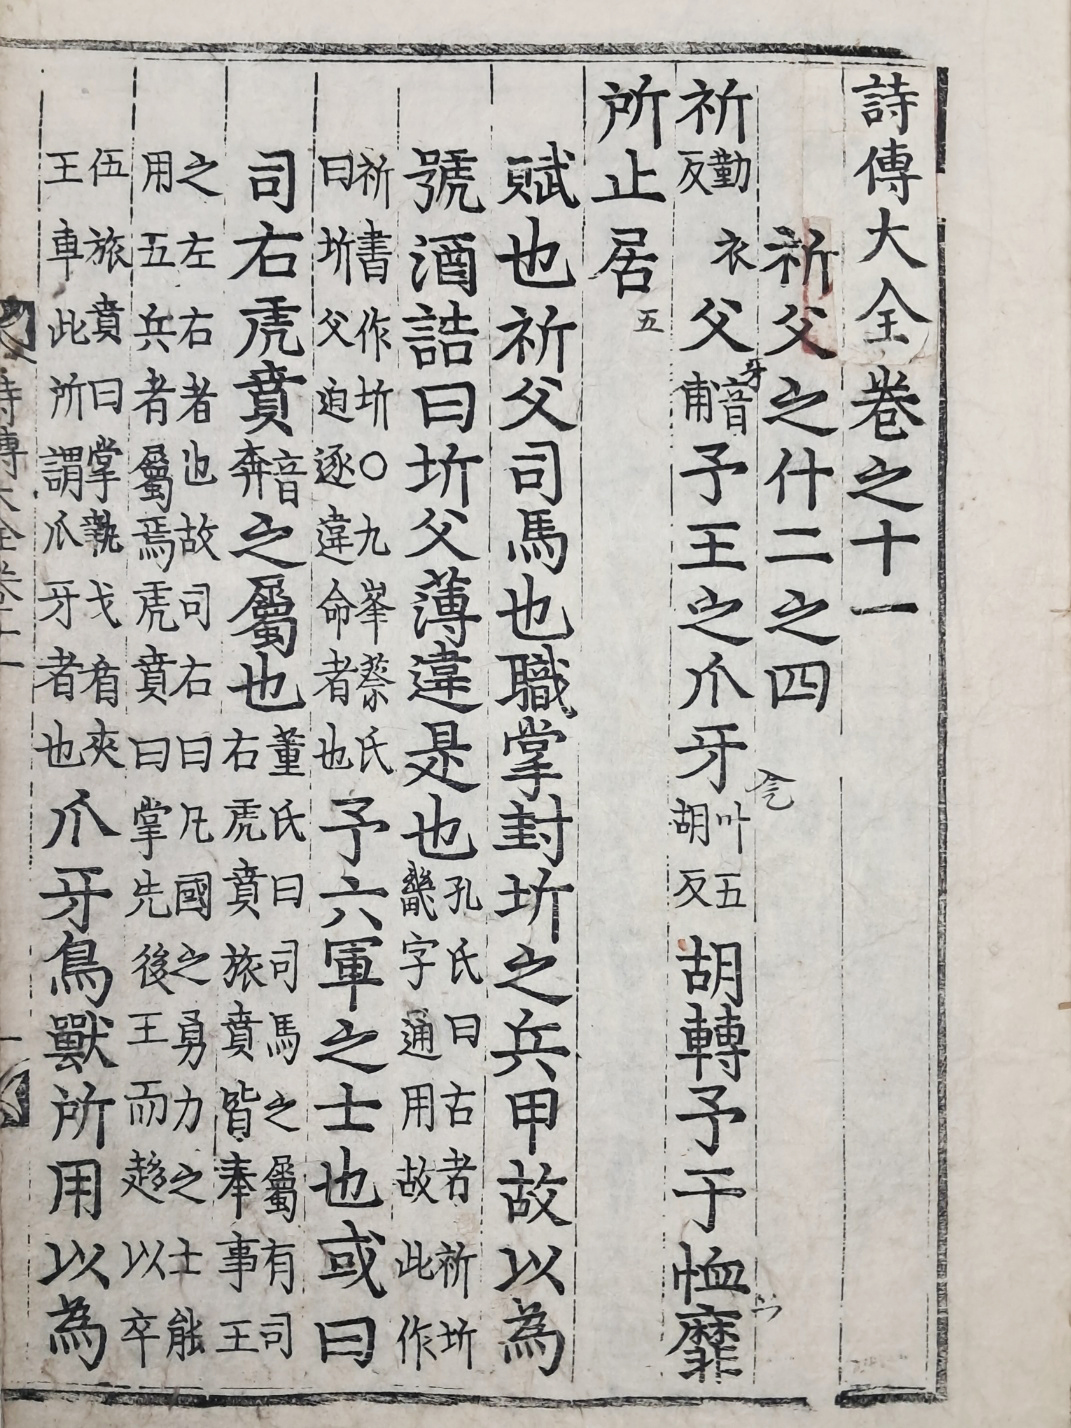 詩傳大全卷之十一
祈父之什二之四
祈勤衣反父音甫予王之爪牙叶五胡反胡轉予于恤靡
所止居
賦也祈父司馬也職掌封圻之兵甲故以為
號酒誥曰圻父薄違是也孔氏曰古者祈圻畿字通用故此作
祈書作圻○九峯蔡氏曰圻父迫逐違命者也予六軍之士也或曰
司右虎賁音奔之屬也董氏曰司馬之屬有司右虎賁旅賁皆奉事王
之左右者也故司右曰凡國之勇力之士能用五兵者屬焉虎賁曰掌先後王而趍以卒
伍旅賁曰掌執戈盾夾王車此所謂爪牙者也爪牙鳥獸所用以為
詩傳大全卷十一